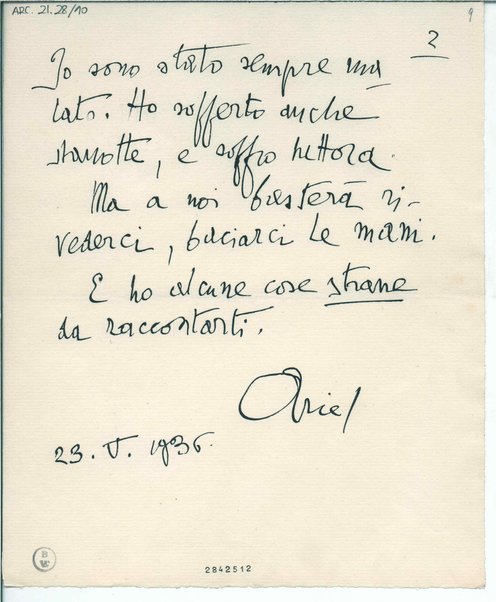 ARC. 21.28/10
9
2
Io sono stato sempre ma
lato. Ho sofferto anche
stanotte, e soffro tuttora.
Ma a noi basterà ri-
vederci, baciarci le mani.
E ho alcune cose strane
da raccontarti.
Ariel
23. V. 1936.
2842512